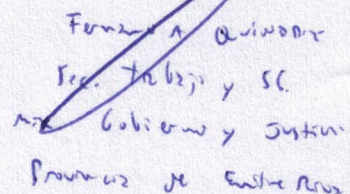 Fernando A Quinodoz
Sec. Trabajo y SS.
Min Gobierno y Justicia
Provincia de Entre Ríos